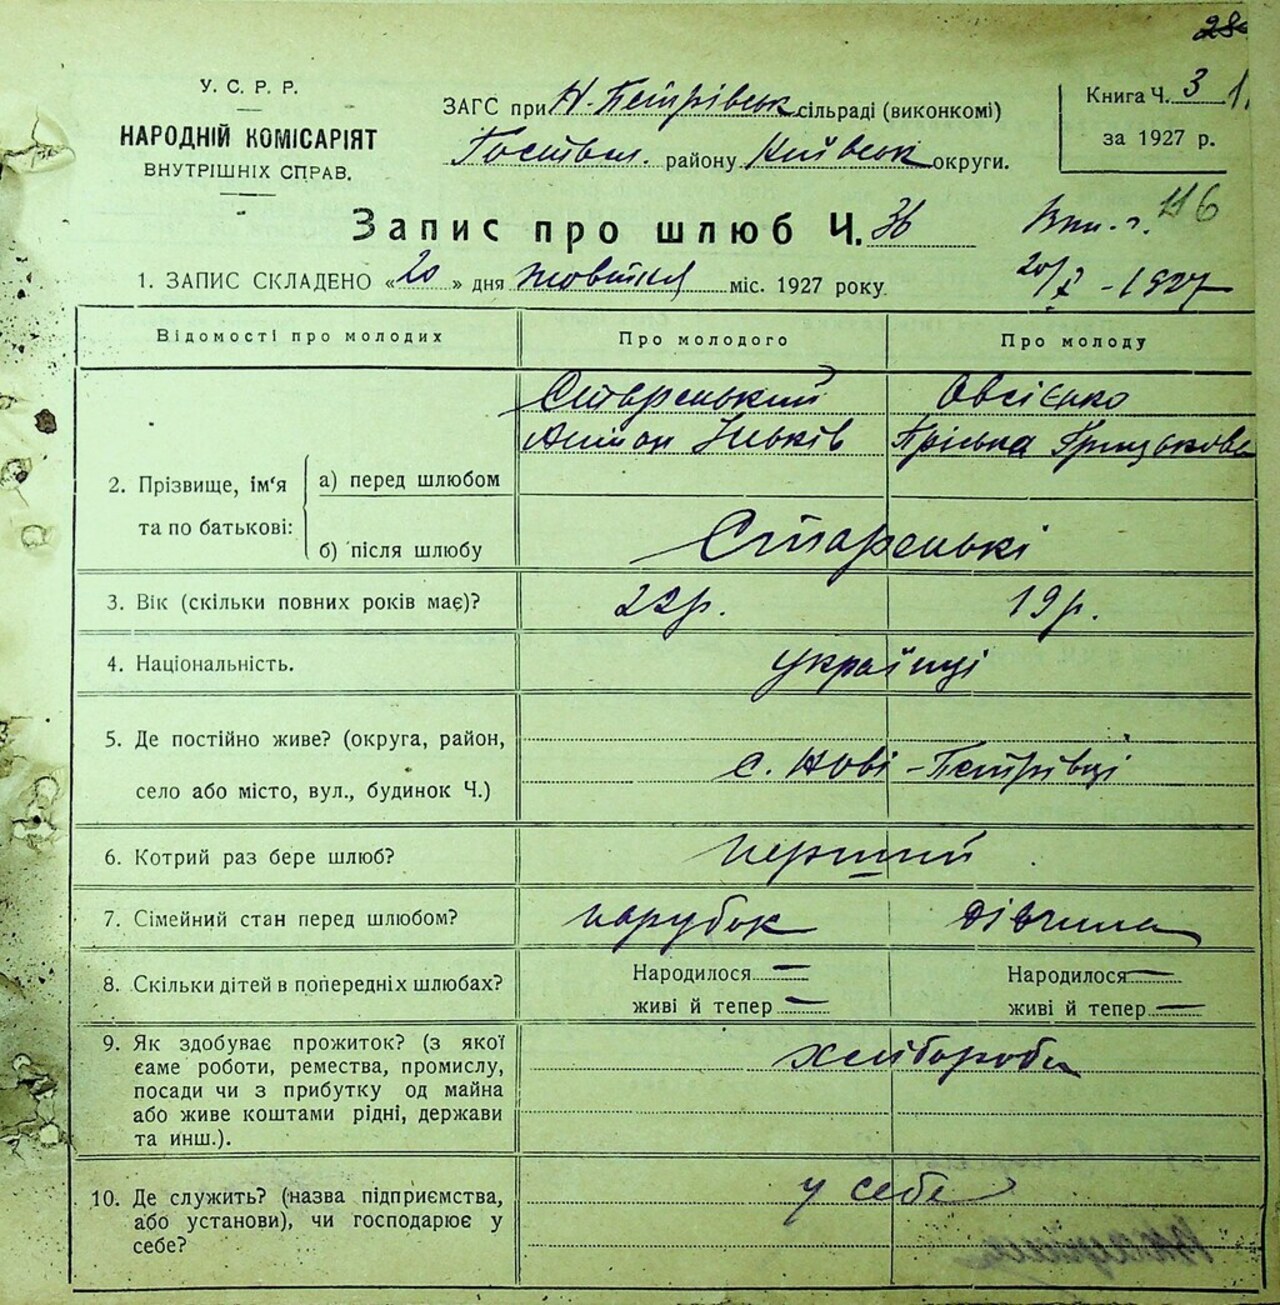 28
У. С. Р. Р.
НАРОДНІЙ КОМІСАРІЯТ
ВНУТРІШНІХ СПРАВ.
ЗАГС при Н. Петрівськ. сільраді (виконкомі)
Гоствел. району Київськ округи.
Книга Ч. 3 1
за 1927 р.
116
Запис про шлюб Ч. 36
1. ЗАПИС СКЛАДЕНО «20» дня жовтня міс. 1927 року
20/X - 1927
Відомості про молодих Про молодого Про молоду
Старенький Овсієнко
Антон Ільків Пріська Грицькова
2. Прізвище, ім'я та по батькові:
а) перед шлюбом
б) після шлюбу Старенькі
3. Вік (скільки повних років має)? 22 р. 19 р.
4. Національність. українці
5. Де постійно живе? (округа, район,
село або місто, вул., будинок Ч.) с. Нові-Петрівці
6. Котрий раз бере шлюб? перший
7. Сімейний стан перед шлюбом? парубок дівчина
8. Скільки дітей в попередніх шлюбах? Народилося — Народилося —
живі й тепер — живі й тепер —
9. Як здобуває прожиток? (з якої
саме роботи, ремества, промислу,
посади чи з прибутку од майна
або живе коштами рідні, держави
та инш.). хлібороби
10. Де служить? (назва підприємства,
або установи), чи господарює у
себе? у себе